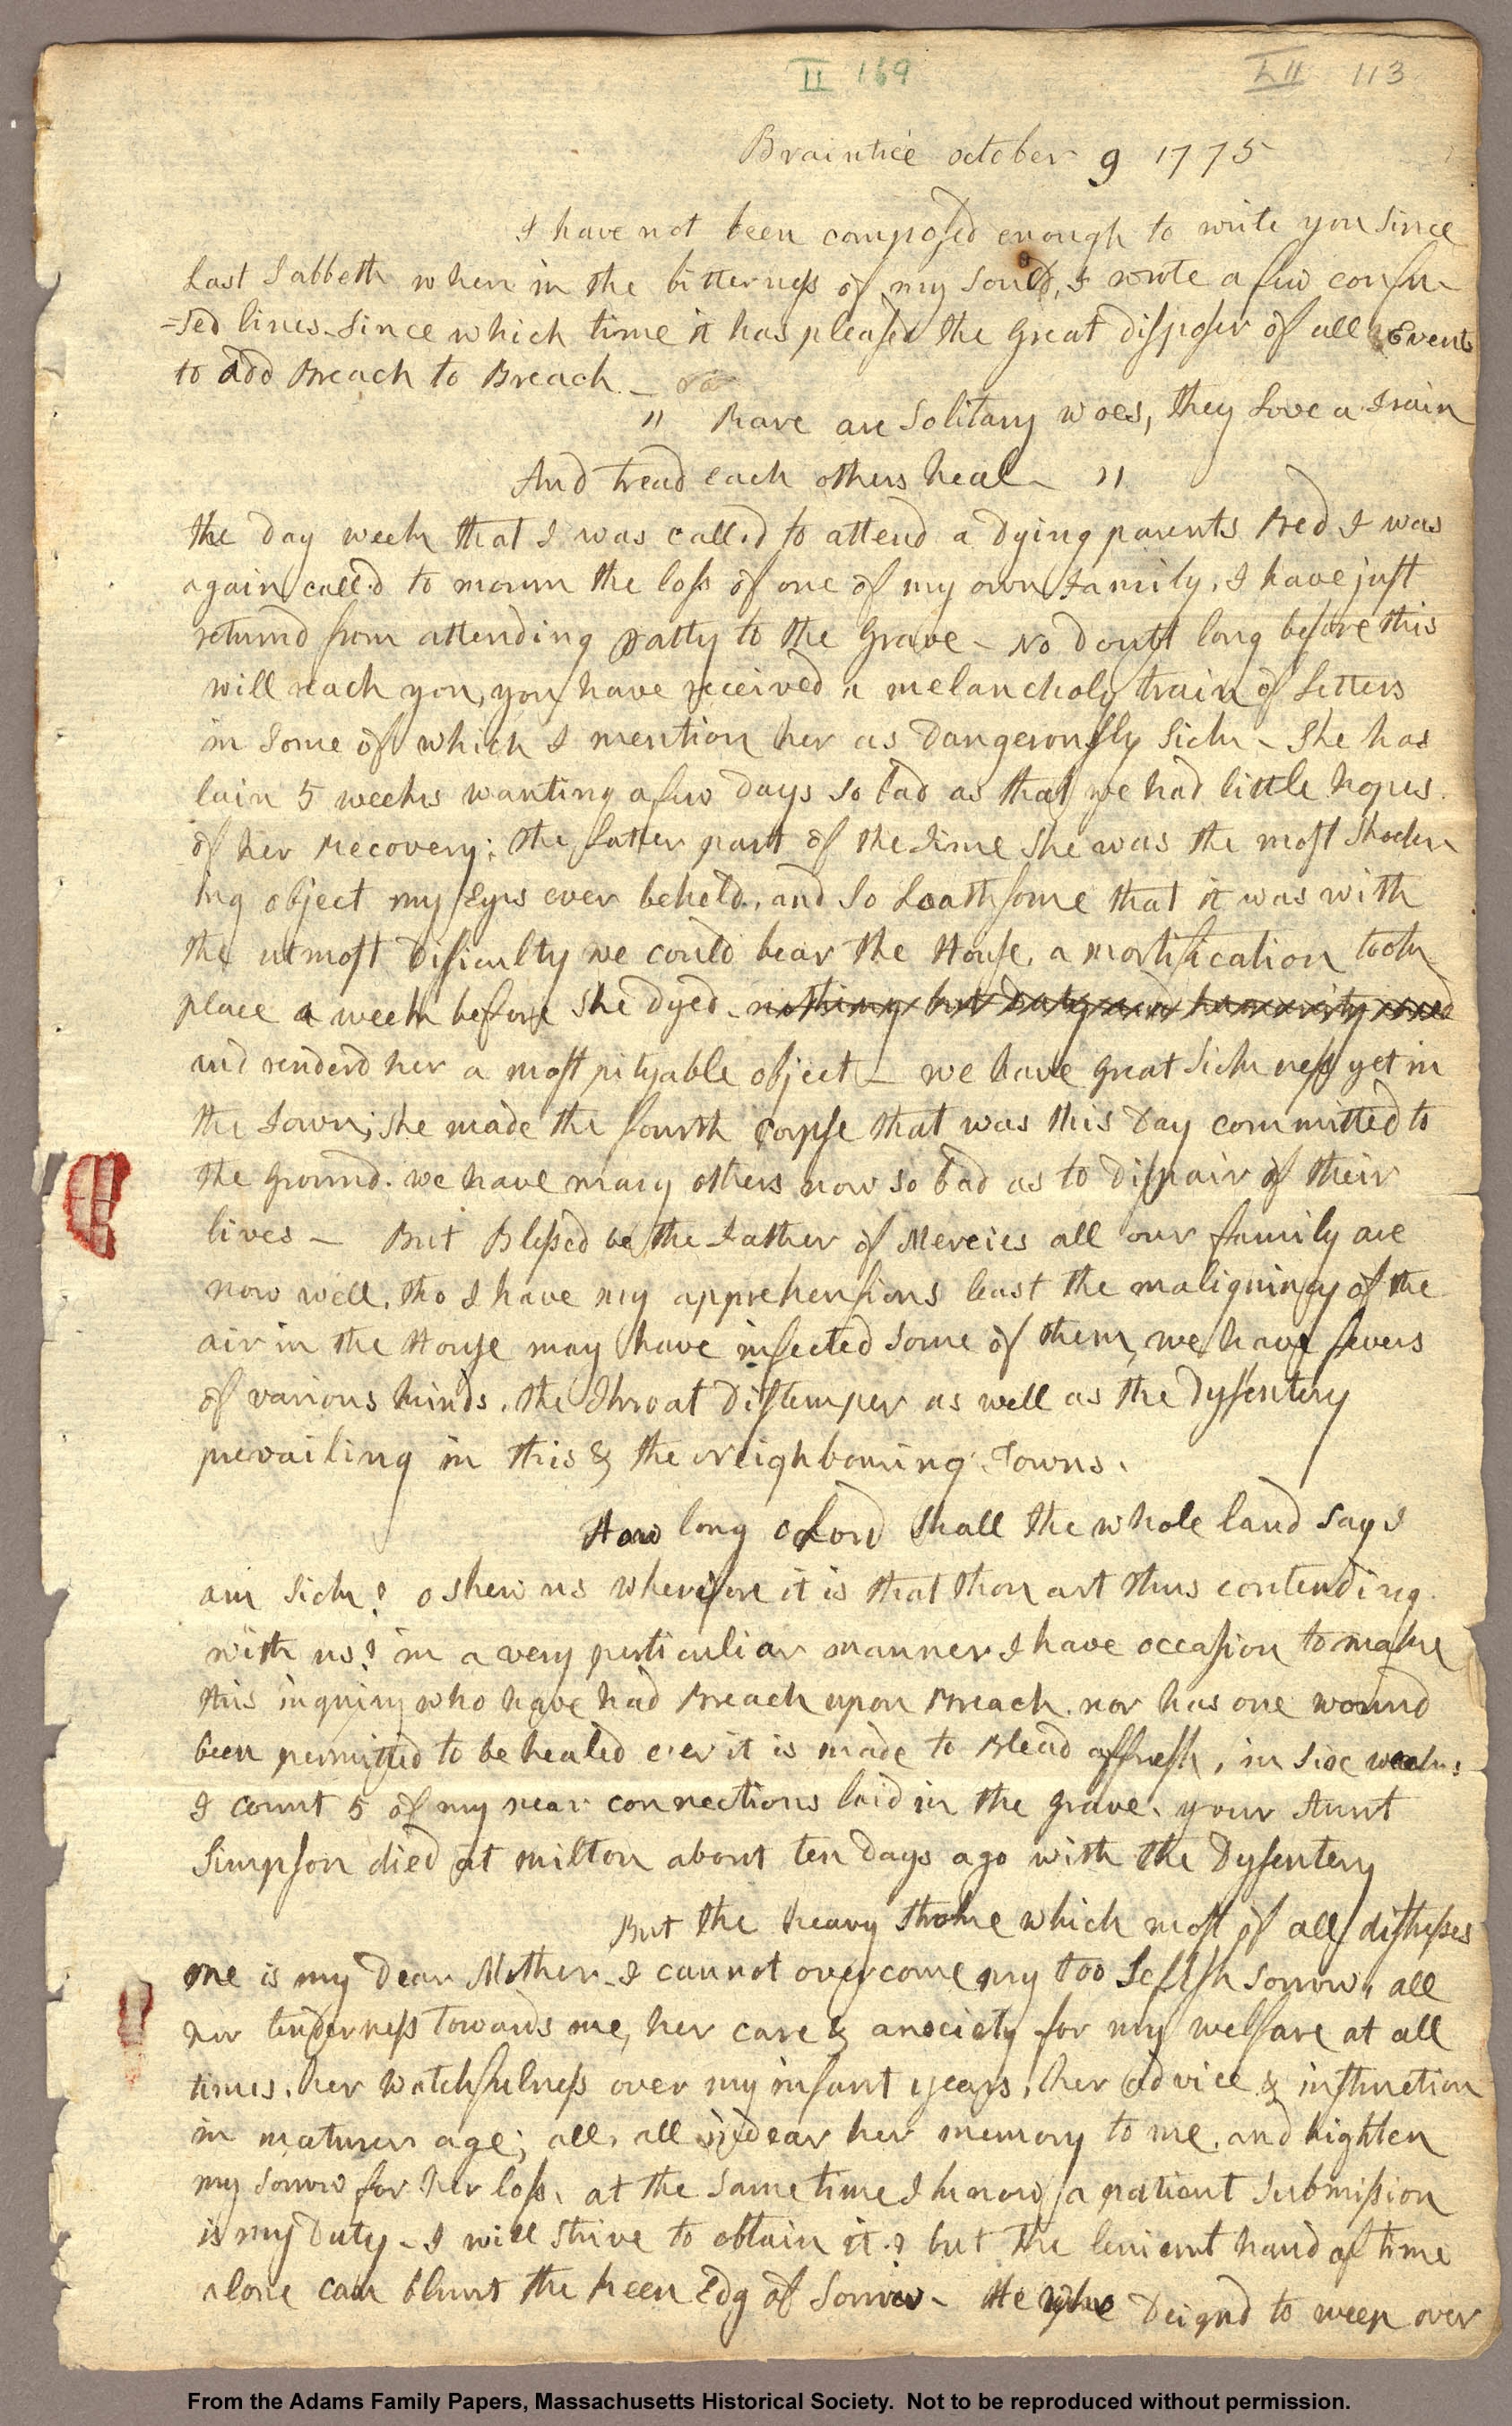 II 169
LII 113
Braintree october 9 1775
I have not been composed enough to write you Since
Last Sabbeth when in the bitterness of my soul, I wrote a few confu-
=sed lines Since which time it has pleased the great disposer of all Events
to add Breach to Breach —
" Rare are Solitary woes, they Love a Train
And tread each others heal — "
the day week that I was calld to attend a dying parents Bed I was
again calld to mourn the loss of one of my own Family. I have just
returnd from attending Patty to the Grave — No doubt long before this
will reach you, you have received a melancholy train of Letters
in some of which I mention her as dangerously sick — She has
lain 5 weeks wanting a few days so bad as that we had little hopes
of her Recovery; the latter part of the Time she was the most shock
ing object my Eyes ever beheld, and so Loathsome that it was with
the utmost dificulty we could bear the House. a mortification took
place a week before she dyed — nothing but duty and humanity could
and renderd her a most pityable object — we have great sickness yet in
the Town; she made the fourth corpse that was this day committed to
the ground. we have many others now so bad as to dispair of their
lives — But Blessed be the Father of Mercies all our family are
now well, tho I have my apprehensions least the malignincy of the
air in the House may have infected some of them, we have fevers
of various kinds, the Throat Distemper as well as the Dyssentery
prevailing in this & the Neighbouring Towns.
How long o Lord shall the whole land say I
am sick? o shew us wherefore it is that thou art thus contending
with us? in a very perticuliar manner I have occasion to make
this inquiry who have had Breach upon Breach. nor has one wound
been permitted to be healed e'er it is made to Blead affresh, in six weeks
I count 5 of my near connections laid in the grave. your Aunt
Simpson died at Milton about ten days ago with the Dysentery
But the heavy stroke which most of all distresses
me is my dear Mother — I cannot overcome my too selfish sorrow, all
her tenderness towards me, her care & anxiety for my welfare at all
times, her watchfulness over my infant years, her advice & instruction
in maturer age; all, all indear her memory to me, and highten
my sorrow for her loss. at the same time I know a patient submission
is my Duty — I will strive to obtain it! but the lenient hand of time
alone can blunt the keen Edg of Sorrow — He who Deignd to weep over
From the Adams Family Papers, Massachusetts Historical Society. Not to be reproduced without permission.